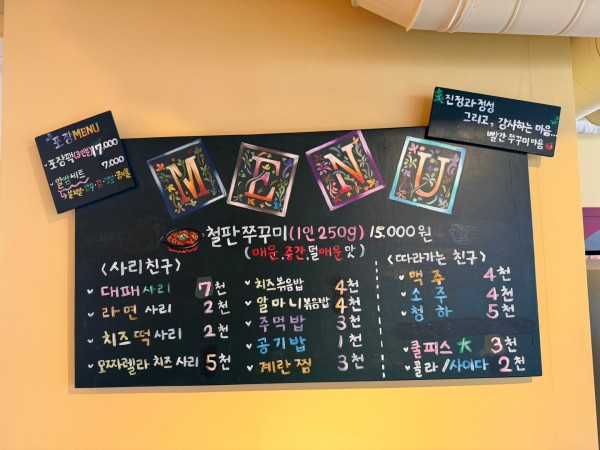 포장MENU
포장팩(2인분) 17,000
알쌈세트 7,000
진정과 정성
그리고, 감사하는 마음...
빨간 쭈꾸미 마음
MENU
철판쭈꾸미(1인 250g) 15.000원
(매운.중간.덜매운 맛)
<사리친구>
대패사리 7천
라면 사리 2천
치즈떡사리 2천
모짜렐라 치즈 사리 5천
치즈볶음밥 4천
알마니볶음밥 4천
주먹밥 3천
공기밥 1천
계란찜 3천
<따라가는 친구>
맥주 4천
소주 4천
청하 5천
쿨피스大 3천
콜라//사이다 2천